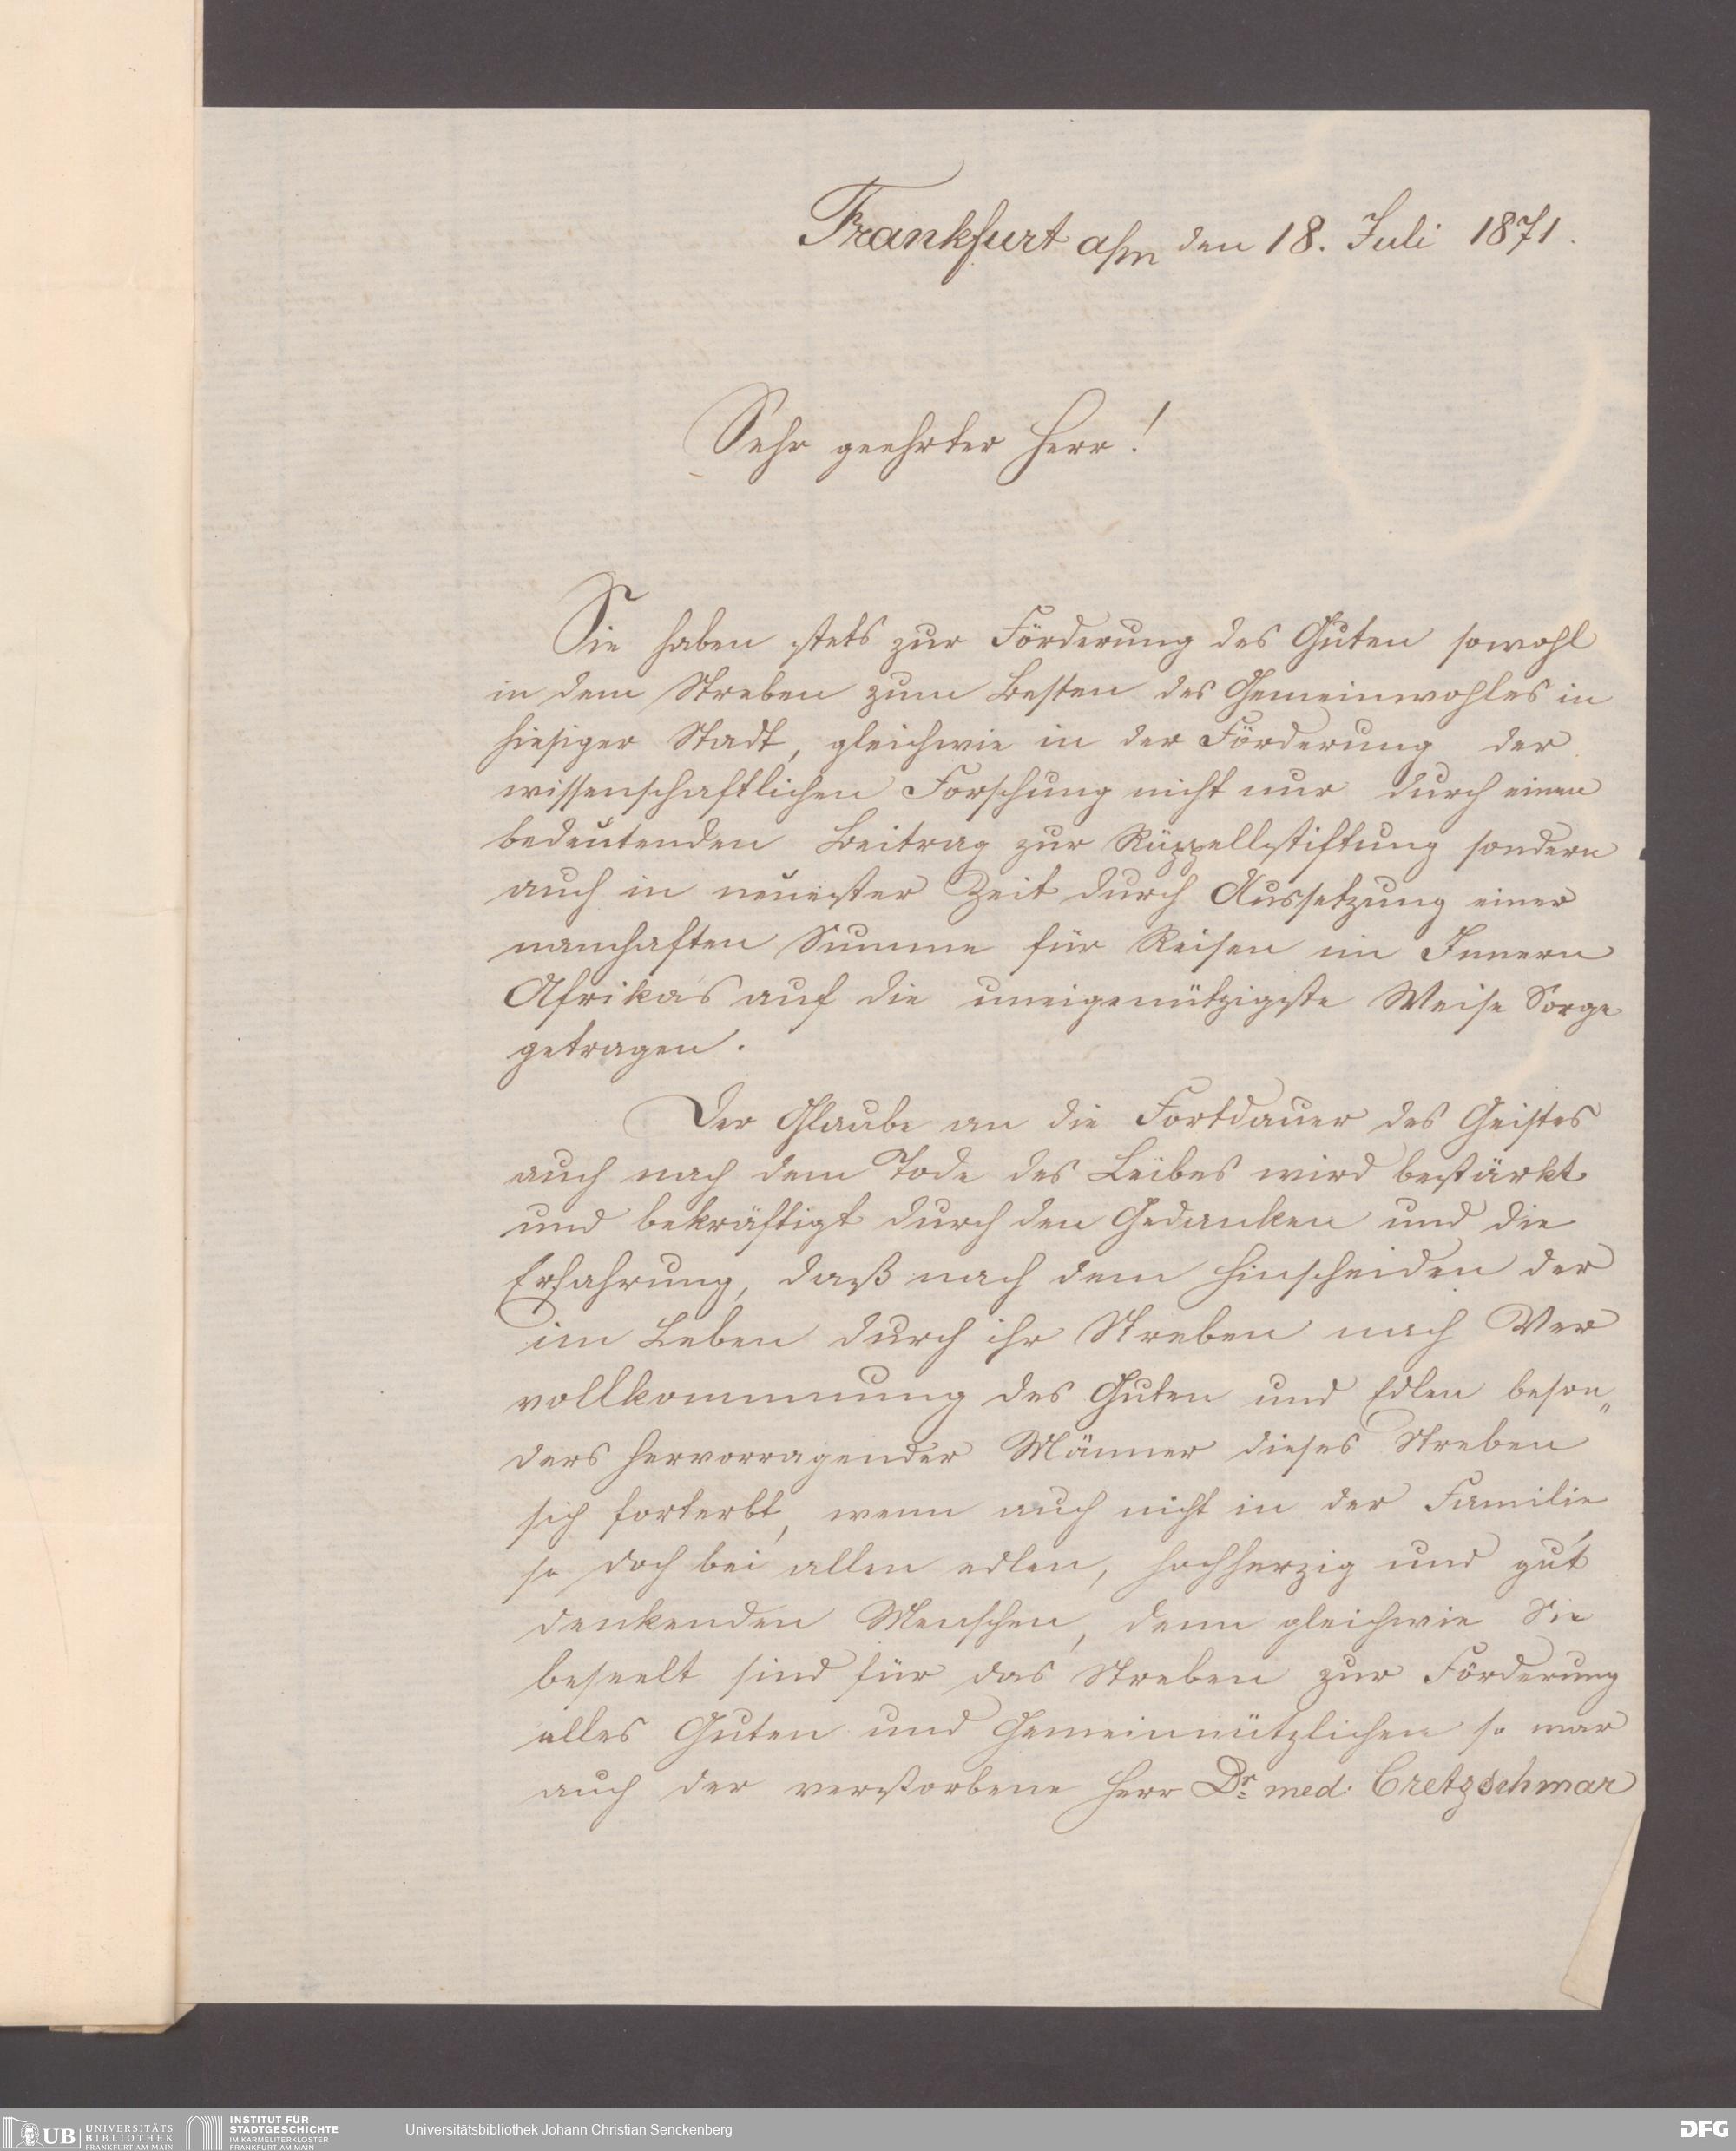 Frankfurt a/m den 18. Juli 1871.
Sehr geehrter Herr!
Sie haben stets zur Förderung des Guten sowohl
in dem Streben zum Besten des Gemeinwohles in
hiesiger Stadt, gleichwie in der Förderung der
wissenschaftlichen Forschung nicht nur durch einen
bedeutenden Beitrag zur Rüppellstiftung sondern
auch in neuester Zeit durch Aussetzung einer
namhaften Summe für Reisen im Innern
Afrikas auf die uneigenützigste Weise Sorge
getragen.
Der Glaube an die Fortdauer des Geistes
auch nach dem Tode des Leibes wird bestärkt
und bekräftigt durch den Gedanken und die
Erfahrung, daß nach dem Hinscheiden der
im Leben durch ihr Streben nach Ver
vollkommnung des Guten und Edlen beson„
ders hervorragender Männer dieses Streben
sich forterbt, wenn auch nicht in der Familie
so doch bei allen edlen, hochherzig und gut
denkenden Menschen, denn gleichwie Sie
beseelt sind für das Streben zur Förderung
alles Guten und Gemeinnützlichen so war
auch der verstorbene Herr Dr. med. Cretzschmar
UB UNIVERSITÄTS
BIBLIOTHEK
FRANKFURT AM MAIN
INSTITUT FÜR
STADTGESCHICHTE
IM KARMELITERKLOSTER
FRANKFURT AM MAIN
Universitätsbibliothek Johann Christian Senckenberg
DFG